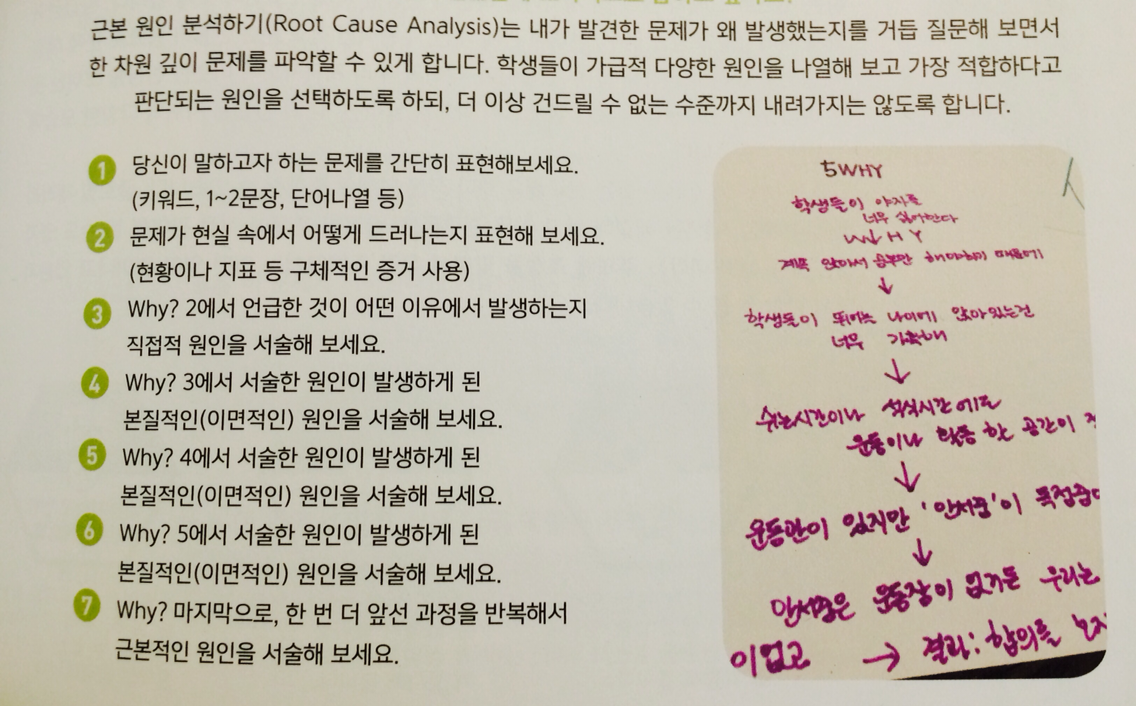 근본 원인 분석하기(Root Cause Analysis)는 내가 발견한 문제가 왜 발생했는지를 거듭 질문해 보면서
한 차원 깊이 문제를 파악할 수 있게 합니다. 학생들이 가급적 다양한 원인을 나열해 보고 가장 적합하다고
판단되는 원인을 선택하도록 하되, 더 이상 건드릴 수 없는 수준까지 내려가지는 않도록 합니다.
1 당신이 말하고자 하는 문제를 간단히 표현해보세요.
(키워드, 1~2문장, 단어나열 등)
2 문제가 현실 속에서 어떻게 드러나는지 표현해 보세요.
(현황이나 지표 등 구체적인 증거 사용)
3 Why? 2에서 언급한 것이 어떤 이유에서 발생하는지
직접적 원인을 서술해 보세요.
4 Why? 3에서 서술한 원인이 발생하게 된
본질적인(이면적인) 원인을 서술해 보세요.
5 Why? 4에서 서술한 원인이 발생하게 된
본질적인(이면적인) 원인을 서술해 보세요.
6 Why? 5에서 서술한 원인이 발생하게 된
본질적인(이면적인) 원인을 서술해 보세요.
7 Why? 마지막으로, 한 번 더 앞선 과정을 반복해서
근본적인 원인을 서술해 보세요.
5WHY
학생들이 야자를
너무 싫어한다
WHY
계속 앉아서 공부만 해야하기 때문에
학생들이 뛰어노는 나이에 앉아있는건
너무 가혹해
쉬는시간이나 석식시간에도
운동이나 활동 할 공간이
운동관이 있지만 '안서중'이 독점
안서중은 운동장이 없거든 우리는
이없고 → 결과: 합의를